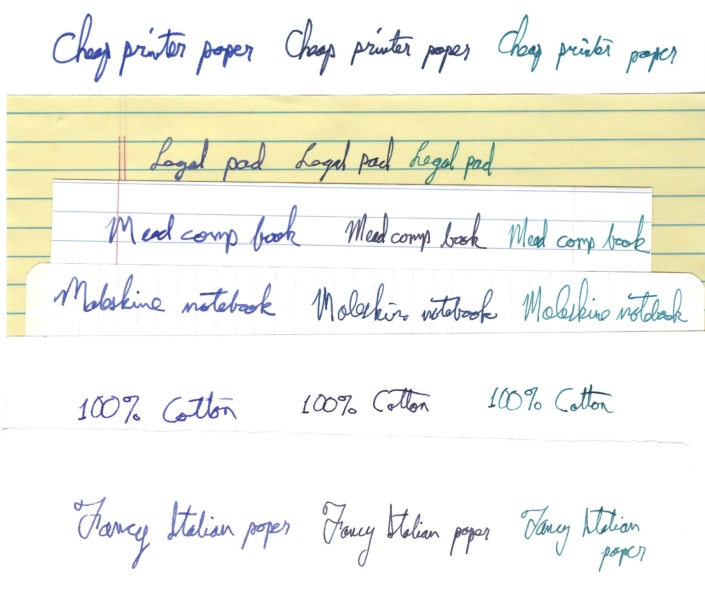 Cheap printer paper Cheap printer paper Cheap printer paper
Legal pad Legal pad Legal pad
Mead comp book Mead comp book Mead comp book
Moleskine notebook Moleskine notebook Moleskine notebook
100% Cotton 100% Cotton 100% Cotton
Fancy Italian paper Fancy Italian paper Fancy Italian
paper